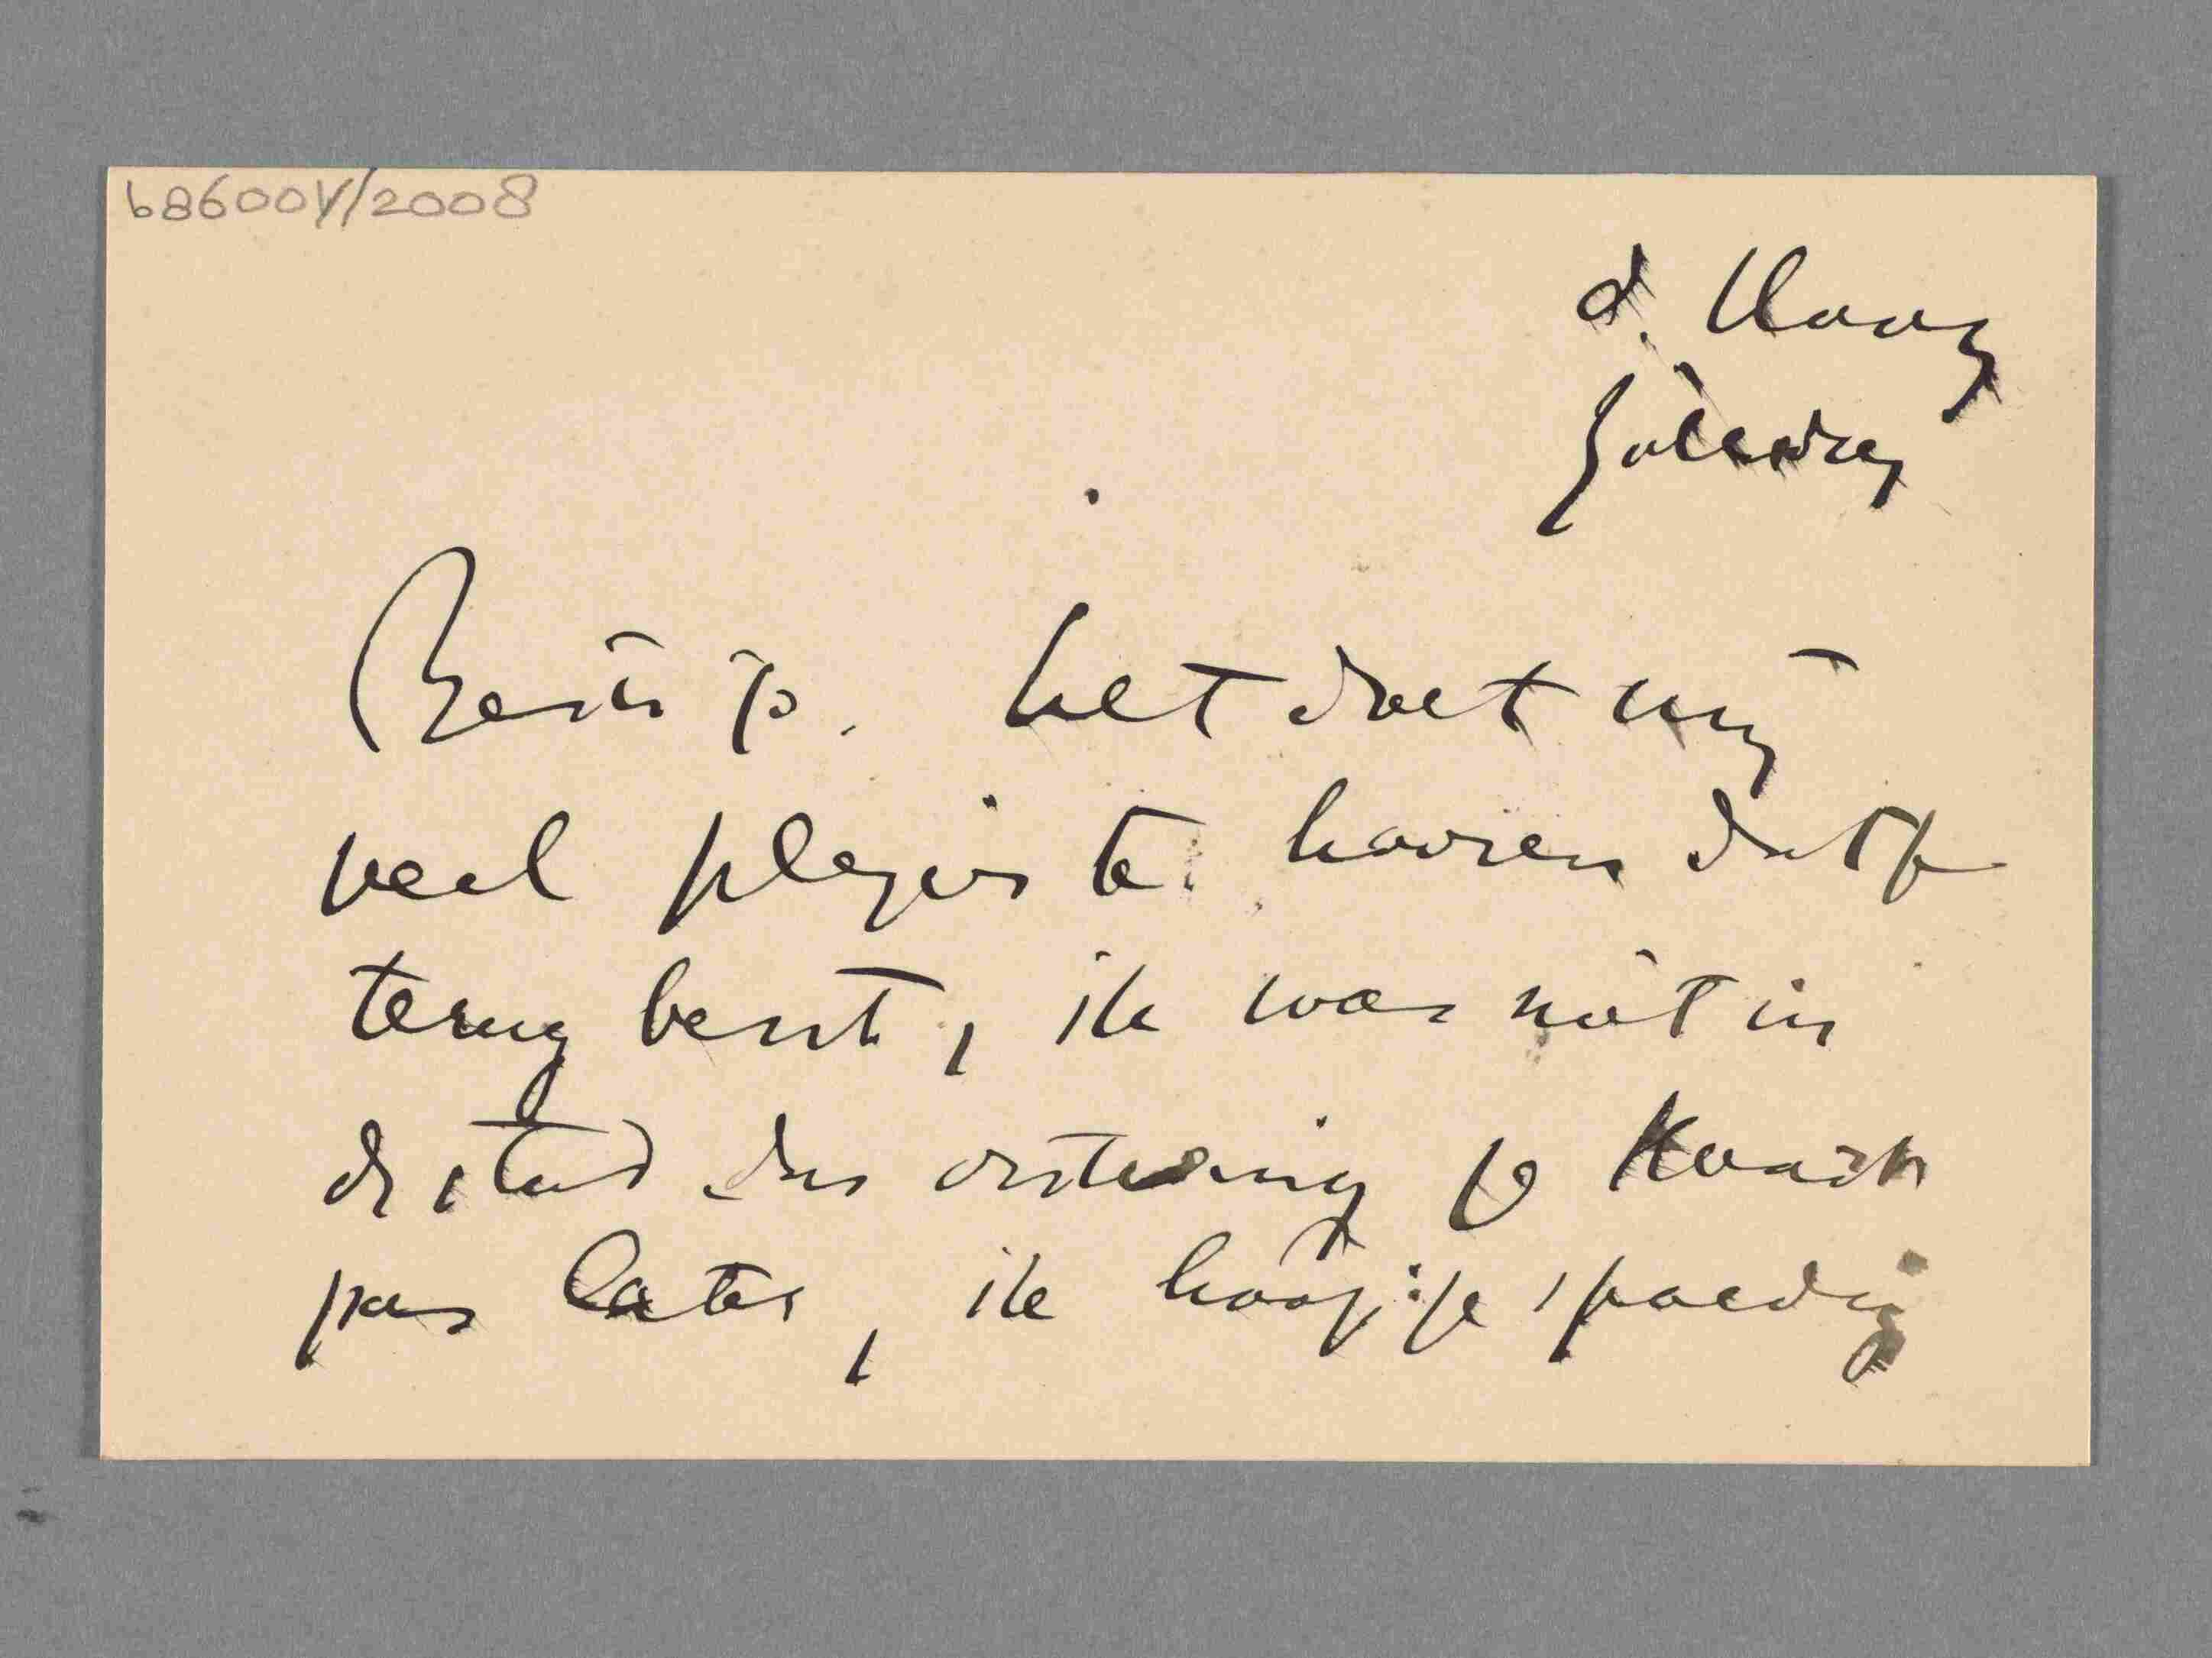 b8600V/2008
d. Haag
Zaterdag
Beste Jo. het doet mij
veel plezier te hooren dat je
terug bent, ik was niet in
de stad dus ontving je kaart
pas later, ik hoop je spoedig